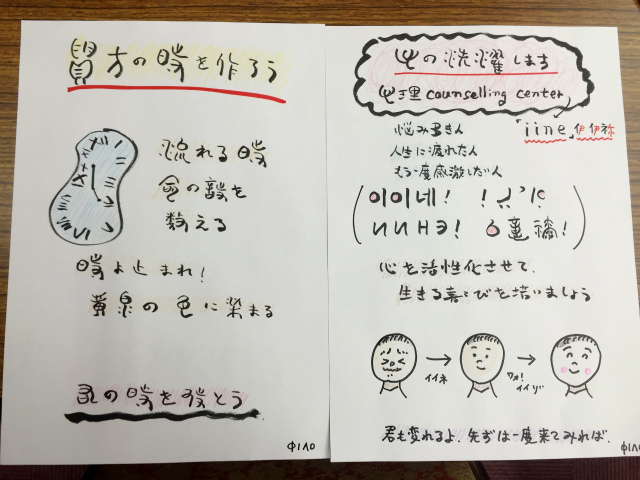 方の時を作ろう
流れる時
の を
える
時よ止まれ!
黄泉の色に染まる
の時を とう
ΦΙΛΟ
心の洗濯します
心理counselling center
悩み多き人
「iine」伊伊祢
人生に疲れた人
もう一度感激したい人
이이네!
ИИНЭ!
心を活性化させて、
生きる喜びを培いましょう
イイネ
ワォ!
イイゾ
君も変れるよ、先ずは一度来てみれば、
ΦΙΛΟ